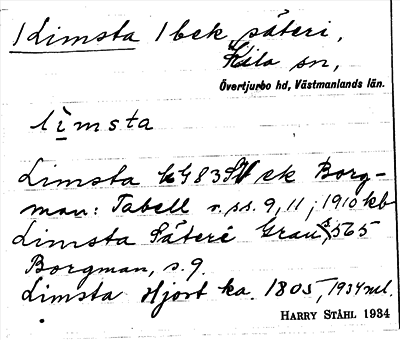 Limsta 1 bek säteri,
Kila sn,
Övertjurbo hd, Västmanlands län.
lìmsta
Limsta ek Borg-
man: Tabell s. 9, 11; 1910 kb
Limsta Säteri Grau 565
Borgman, s. 9.
Limsta Hjort ka. 1805, 1934
HARRY STÅHL 1934